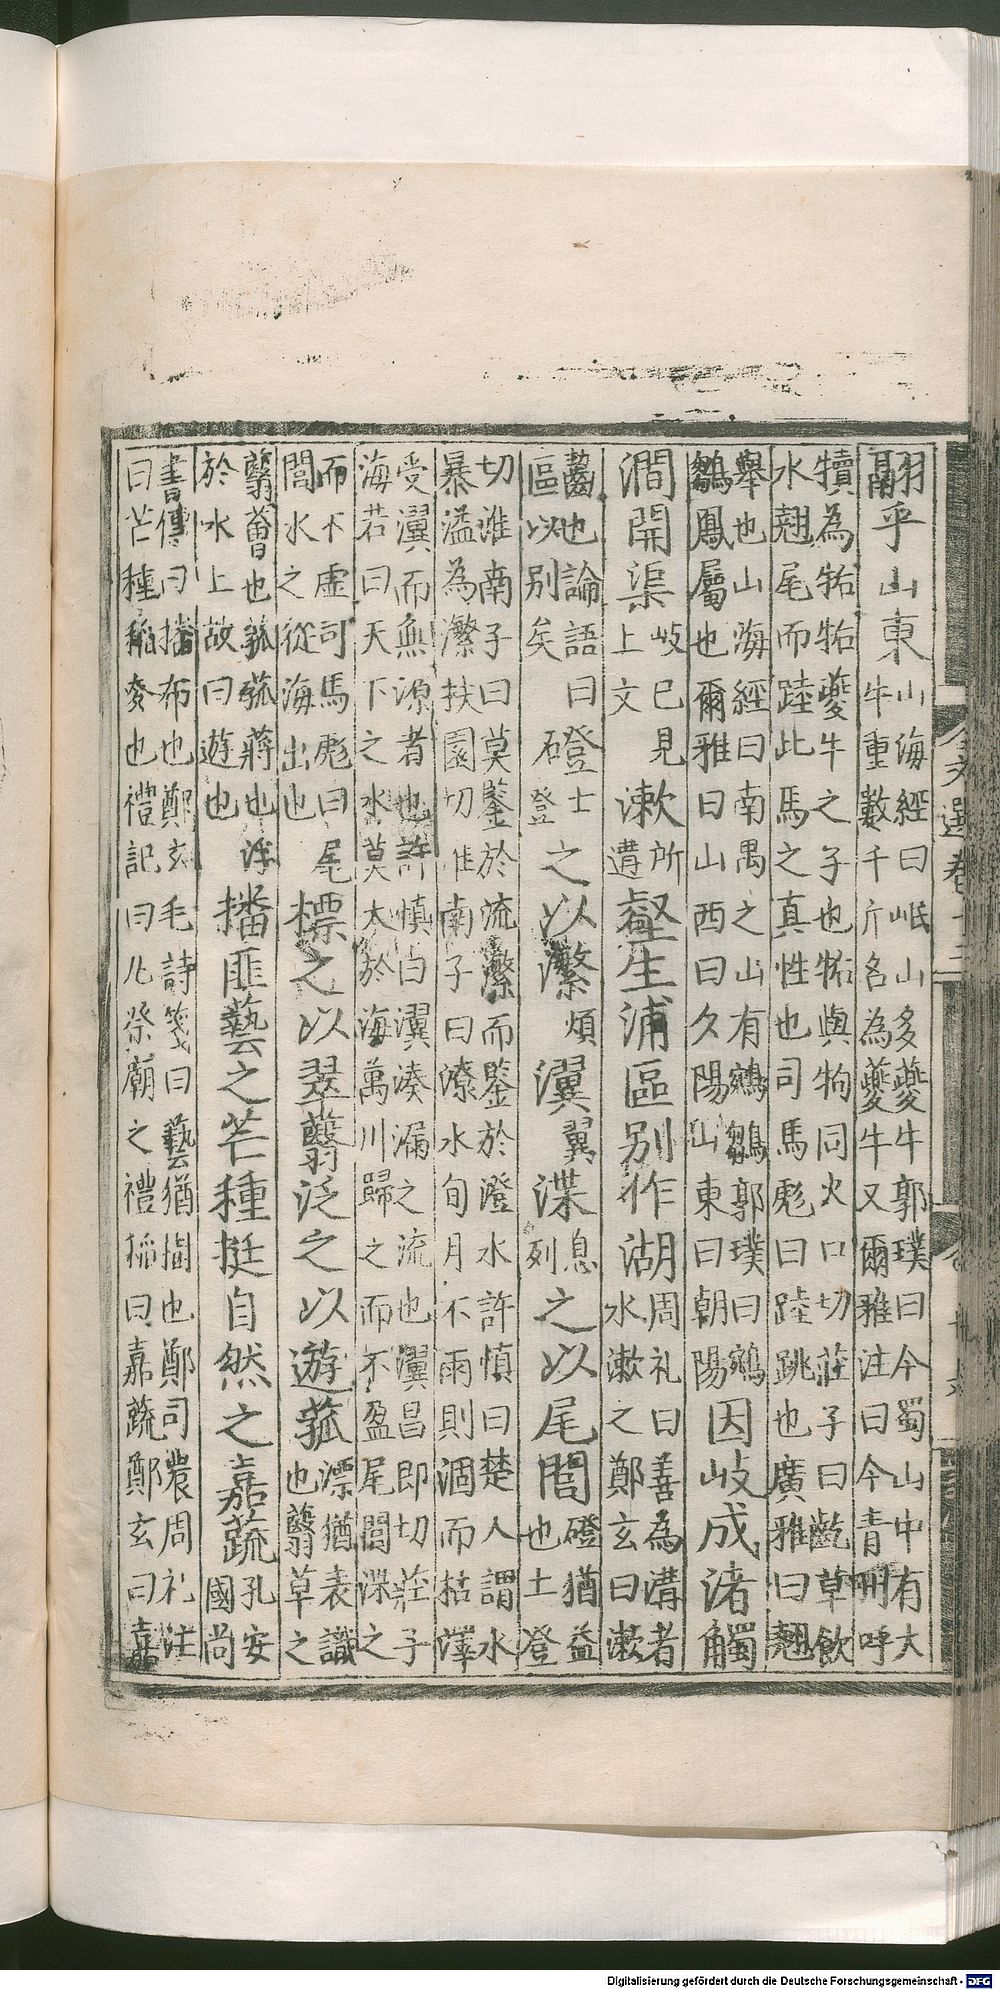 翮乎山東
山海經曰岷山多夔牛郭璞曰今蜀山中有大
牛重數千斤名為夔牛又爾雅注曰今青州呼
犢為牯牯夔牛之子也牯與㸸同火口切莊子曰齕草飲
水翹尾而踛此馬之真性也司馬彪曰踛跳也廣雅曰翹
舉也山海經曰南禺之山有鵷鶵郭璞曰鵷
鶵鳳屬也爾雅曰山西曰夕陽山東曰朝陽
因岐成渚觸
澗開渠
岐已見
上文
漱
所
遘
壑生浦區别作湖
周礼曰善為溝者
水漱之鄭玄曰漱
齧也論語曰
區以别矣
磴
士
登
之以瀿
煩
瀷
翼
渫
息
列
之以尾閭
磴猶益
也土登
切淮南子曰莫鑒於流瀿而鑒於澄水許慎曰楚人謂水
暴溢為瀿扶園切淮南子曰潦水旬月不雨則涸而枯澤
受瀷而無源者也許慎曰瀷湊漏之流也瀷昌即切莊子
海若曰天下之水莫大於海萬川歸之而不盈尾閭渫之
而不虚司馬彪曰尾
閭水之從海出也
標之以翠蘙泛之以遊菰
漂猶表識
也蘙草之
蘙薈也菰菰蔣也浮
於水上故曰遊也
播匪藝之芒種挺自然之嘉蔬
孔安
國尚
書傳曰播布也鄭玄毛詩箋曰藝猶樹也鄭司農周礼注
曰芒種稻麥也禮記曰凡祭廟之禮稻曰嘉蔬鄭玄曰嘉
文選卷十二
Digitalisierung gefördert durch die Deutsche Forschungsgemeinschaft - DFG